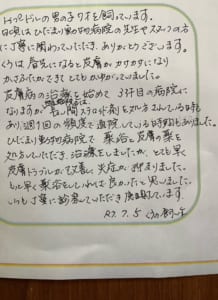 トイプードルの男の子 クオを飼っています。
日頃はひだまり動物病院の先生やスタッフの方
に丁寧に関わっていただき、ありがとうございます。
くうは 春先になると皮膚がカサカサになり
かさぶたができてとてもかゆがっていました。
皮膚病の治療を始めて 3件目の病院に
なりますが、長い間ステロイド剤を処方されている時も
あり、週1回の頻度で通院している時期もありました。
ひだまり動物病院で 薬浴と皮膚の薬を
処方していただき、治療をしましたが、とても早く
皮膚トラブルが改善し炎症が治まりました。
もっと早く薬浴をしていれば良かったと思いました。
いつも丁寧に診察していただき感謝しています。
R7.7.5 くうの飼い主